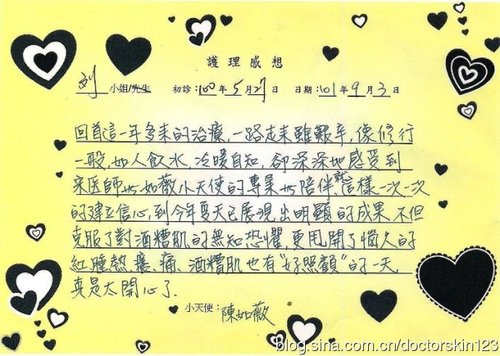 護理感想
刘 小姐/先生 初診:100年5月27日 日期:101年9月3日
回首這一年多來的治療,一路走來雖艱辛,像修行
一般,如人飲水,冷暖自知,卻深深地感受到
宋医師&如薇小天使的專業&陪伴,就這樣一次一次
的建立信心,到今年夏天已展現出明顯的成果,不但
克服了對酒糟肌的無知恐懼,更甩開了惱人的
紅腫熱癢痛,酒糟肌也有"好照顧"的一天,
真是太開心了.
小天使:陳如薇
blog.sina.com.cn/doctorskin123